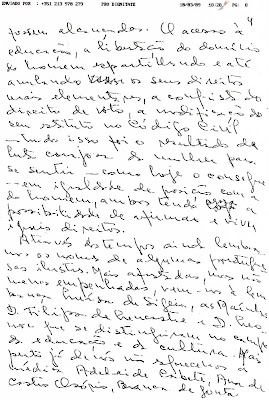 ENVIADO POR : +351 213 978 279 PRO DIGNITATE 18/03/09 10:20 PG: 8
4
possam alcançadas. O acesso à
educação, a libertação do domínio
do homem repartilhando e até
anulando os seus direitos
mais elementares, a conquista do
direito de voto, a modificação do
seu estatuto no Código Civil
— tudo isso foi o resultado da
luta
se sentir — como hoje o consegue
— em igualdade de posição com a
do homem, ambos tendo a
possibilidade de afirmar e viver
iguais direitos.
Através dos tempos ainda lembra-
mos os nomes de algumas
ilustres. Mais ajustadas, mas não
menos empenhadas, vem-nos à lem-
brança Luísa de Sigeia, as Rainhas
D. Filipa de Lencastre e D. Leo-
nor que se distinguiram no campo
da educação e da cultura. Mais
perto já de nós não esquecemos a
médica Adelaide Cabete, Ana de
Castro Osório, Branca de Gonta